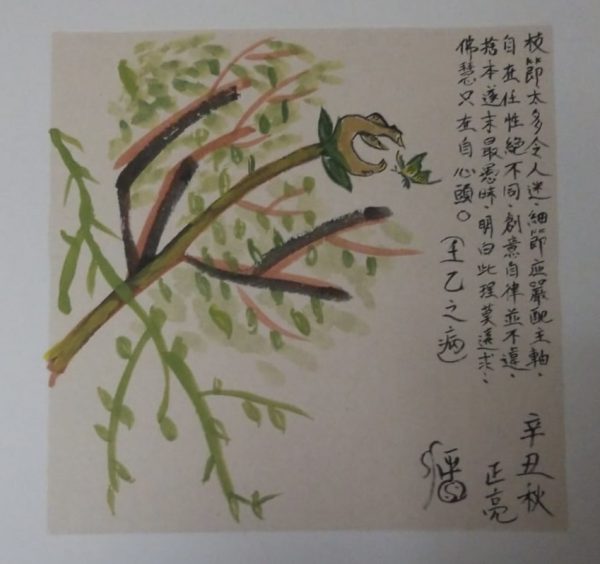 枝節太多令人迷，細節应嚴配主軸．
自在任性絕不同．創意自律並不違．
捨本逐末最愚昧．明白此理莫遠求：
佛慧只在自心頭。(壬乙之病)
辛丑秋
正亮